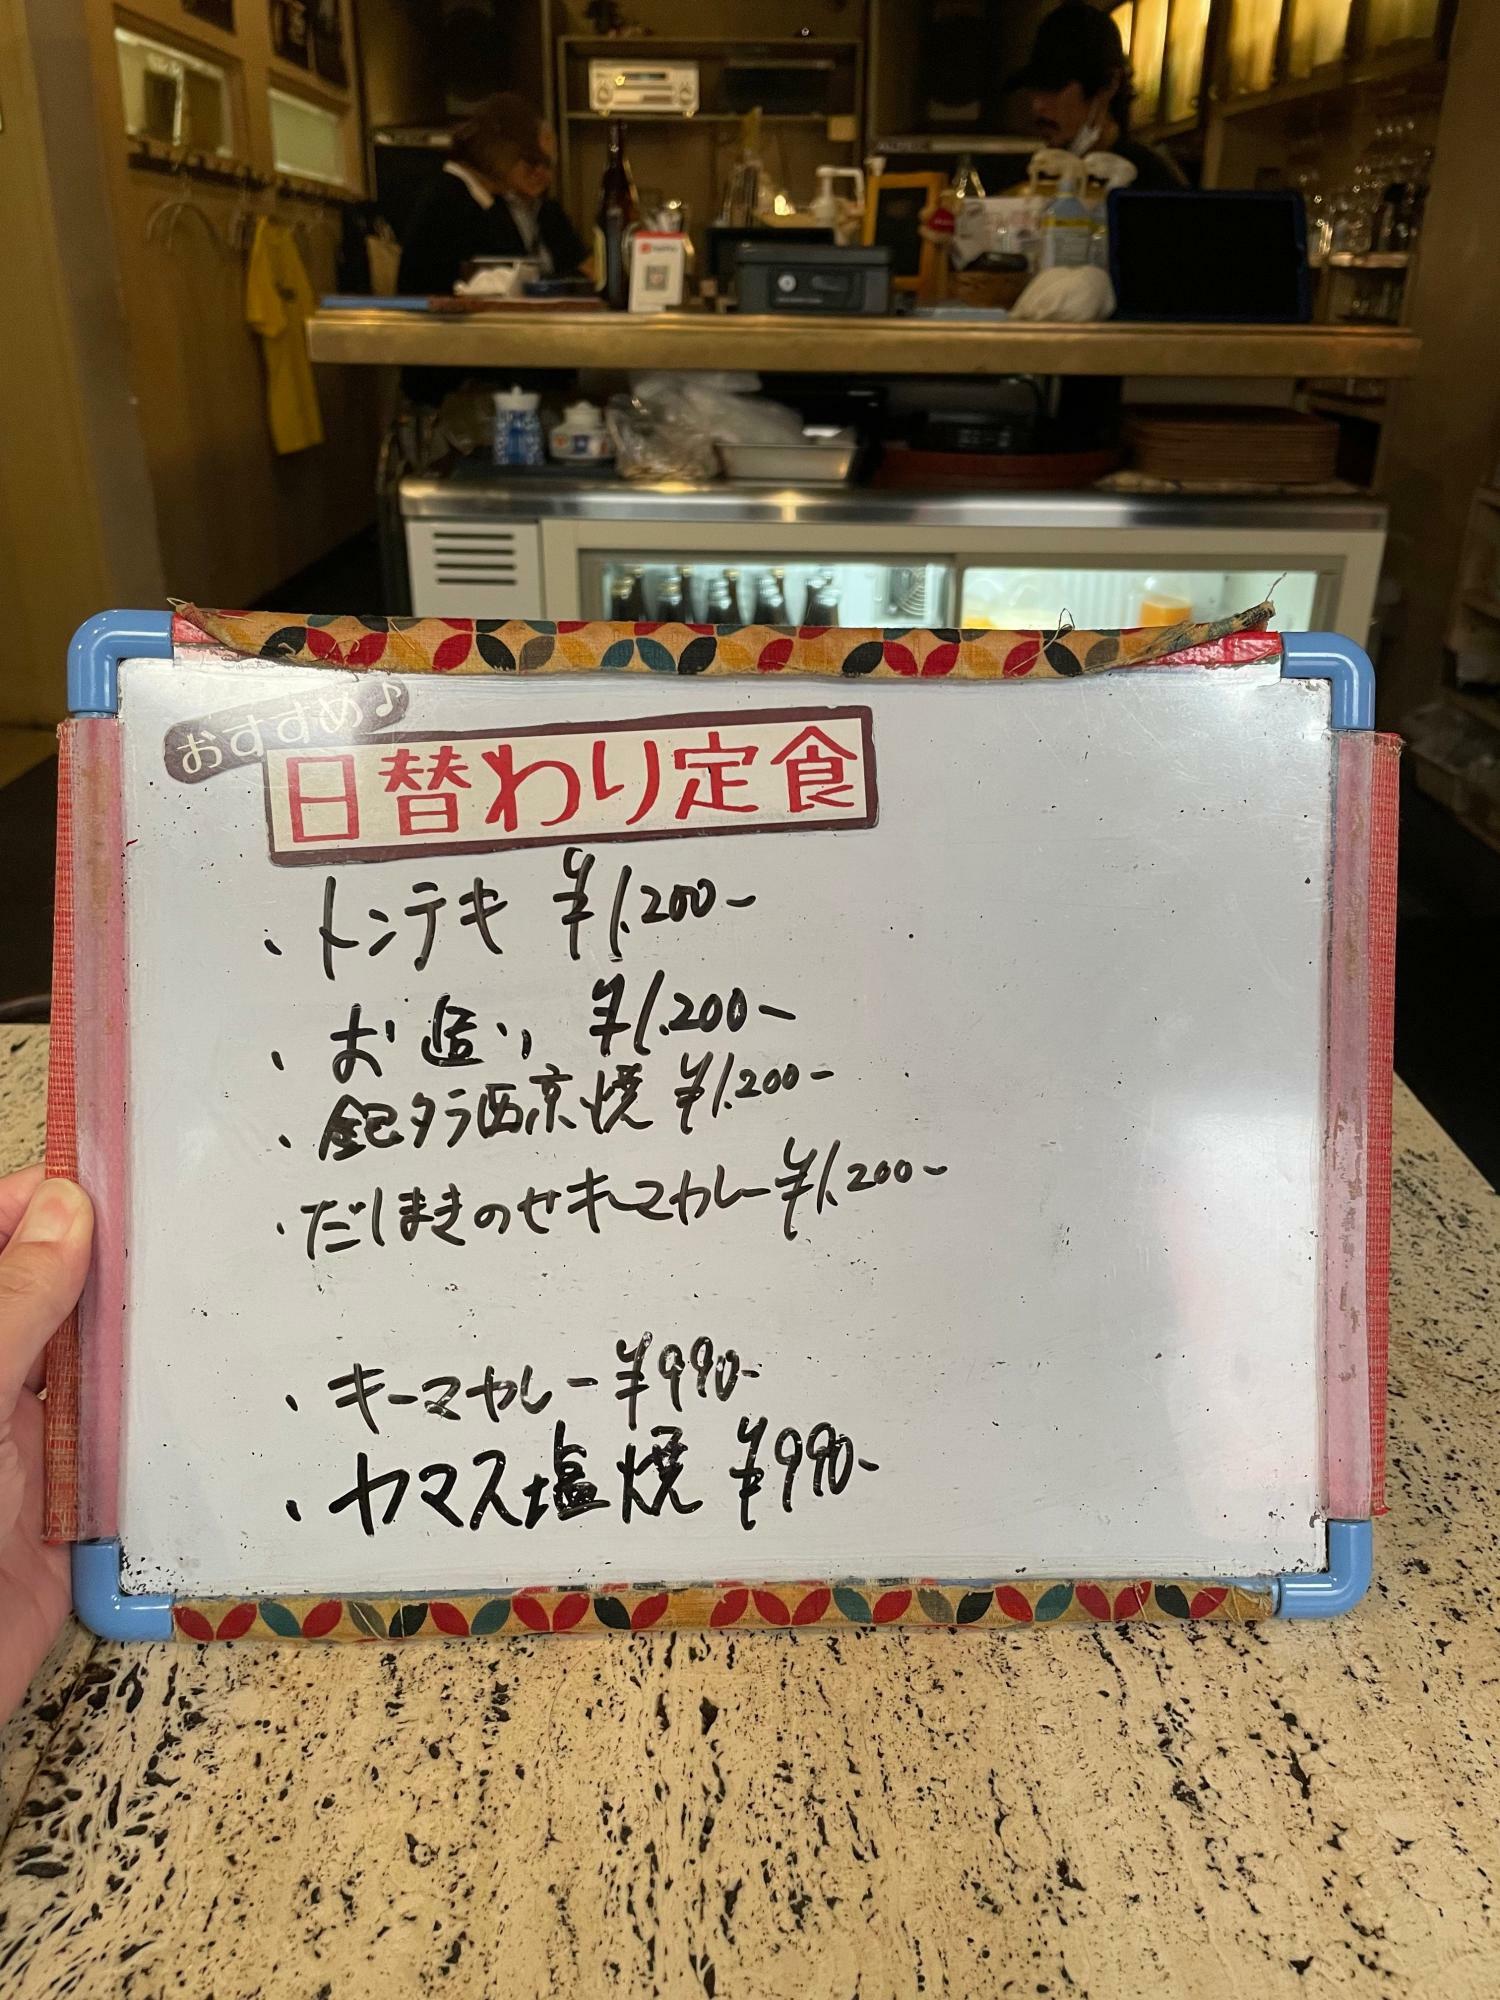 おすすめ♪
日替わり定食
・トンテキ ¥1,200-
・お造り ¥1.200-
・銀タラ西京焼 ¥1.200-
・だしまきのせキーマカレー ¥1,200-
・キーマカレー ¥990-
・カマス塩焼 ¥990-